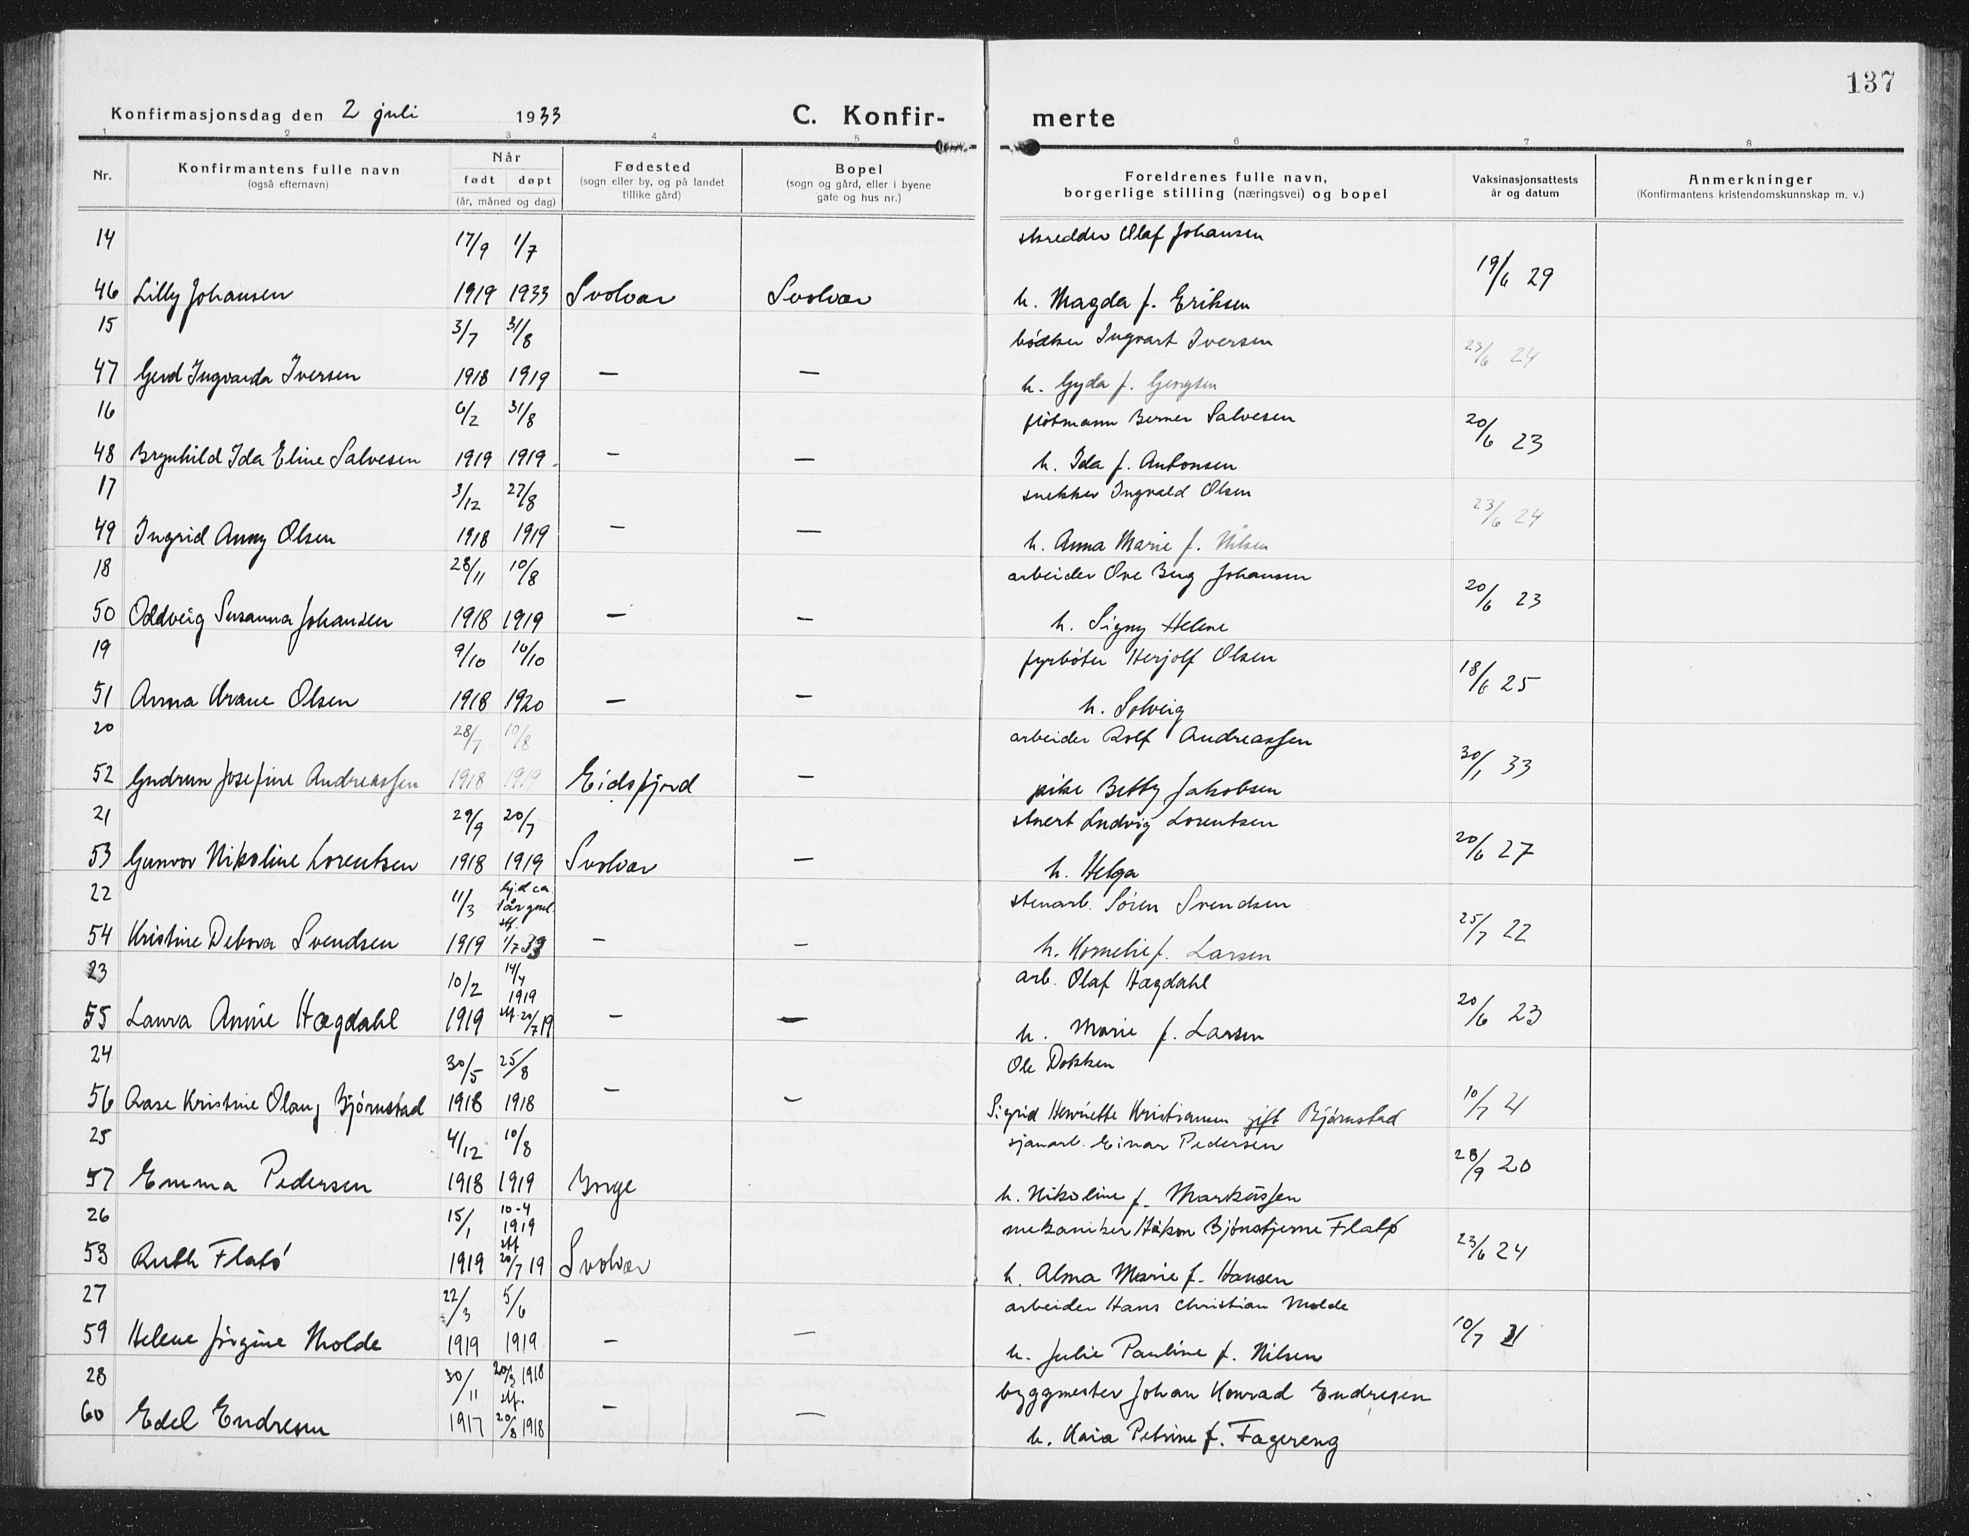 137
Konfirmasjonsdag den 2 juli 1933 C. Konfir- merte
1 2 3 4 5 6 7 8
Nr. Konfirmantens fulle navn (også efternavn) Når født døpt (år, måned og dag) Fødested (sogn eller by, og på landet tillike gård) Bopel (sogn og gård, eller i byene gate og hus nr.) Foreldrenes fulle navn, borgerlige stilling (næringsvei) og bopel Vaksinasjonsattests år og datum Anmerkninger (Konfirmantens kristendomskunnskap m. v.)
14 17/9 1/7 skredder Olaf Johansen
46 Lilly Johansen 1919 1933 Svolvær Svolvær h. Magda f. Eriksen 19/6 29
15 3/7 31/8 bødker Ingvart Iversen
47 Gerd Ingvarda Iversen 1918 1919 — — h. Gyda f. Georgsen 23/6 24
16 6/2 31/8 fløtmann Berner Salvesen
48 Brynhild Ida Eline Salvesen 1919 1919 — — h. Ida f. Antonsen 20/6 23
17 3/12 27/8 snekker Ingvald Olsen
49 Ingrid Anny Olsen 1918 1919 — — h. Anna Marie f. Nilsen 23/6 24
18 28/11 10/8 arbeider Ove Berg Johansen
50 Oddveig Susanna Johansen 1918 1919 — — h. Signy Helene 20/6 23
19 9/10 10/10 fyrbøter Herjolf Olsen
51 Anna Krane Olsen 1918 1920 — — h. Solveig 18/6 25
20 28/7 10/8 arbeider Rolf Andreassen
52 Gudrun Josefine Andreassen 1918 1919 Eidsfjord — pike Betty Jakobsen 30/1 33
21 29/9 20/7 stuert Ludvig Lorentsen
53 Gunvor Nikoline Lorentsen 1918 1919 Svolvær — h. Helga 20/6 27
22 11/3 hj.d ca. 1 år gml. stenarb. Søren Svendsen
54 Kristine Debora Svendsen 1919 stf. 1/7 33 — — h. Kornelie f. Larsen 25/7 22
23 10/2 14/4 1919 arb. Olaf Hægdahl
55 Laura Annie Hægdahl 1919 stf. 20/7 19 — — h. Marie f. Larsen 20/6 23
24 30/5 25/8 Ole Dokken
56 Aase Kristine Olaug Bjørnstad 1918 1918 — — Sigrid Henriette Kristiansen gift Bjørnstad 10/7 21
25 4/12 10/8 sjauarb. Einar Pedersen
57 Emma Pedersen 1918 1919 Borge h. Nikoline f. Markussen 28/9 20
26 15/1 10-4 1919 mekaniker Håkon Bjønstjerne Flatø
58 Ruth Flatø 1919 stf. 20/7 19 Svolvær h. Alma Marie f. Hansen 23/6 24
27 22/3 5/6 arbeider Hans Christian Molde
59 Helene Jørgine Molde 1919 1919 — — h. Julie Pauline f. Nilsen 10/7 21
28 30/11 20/3 1918 byggmester Johan Konrad Endresen
60 Edel Endresen 1917 stf. 20/8 1918 — — h. Kaia Petrine f. Fagereng